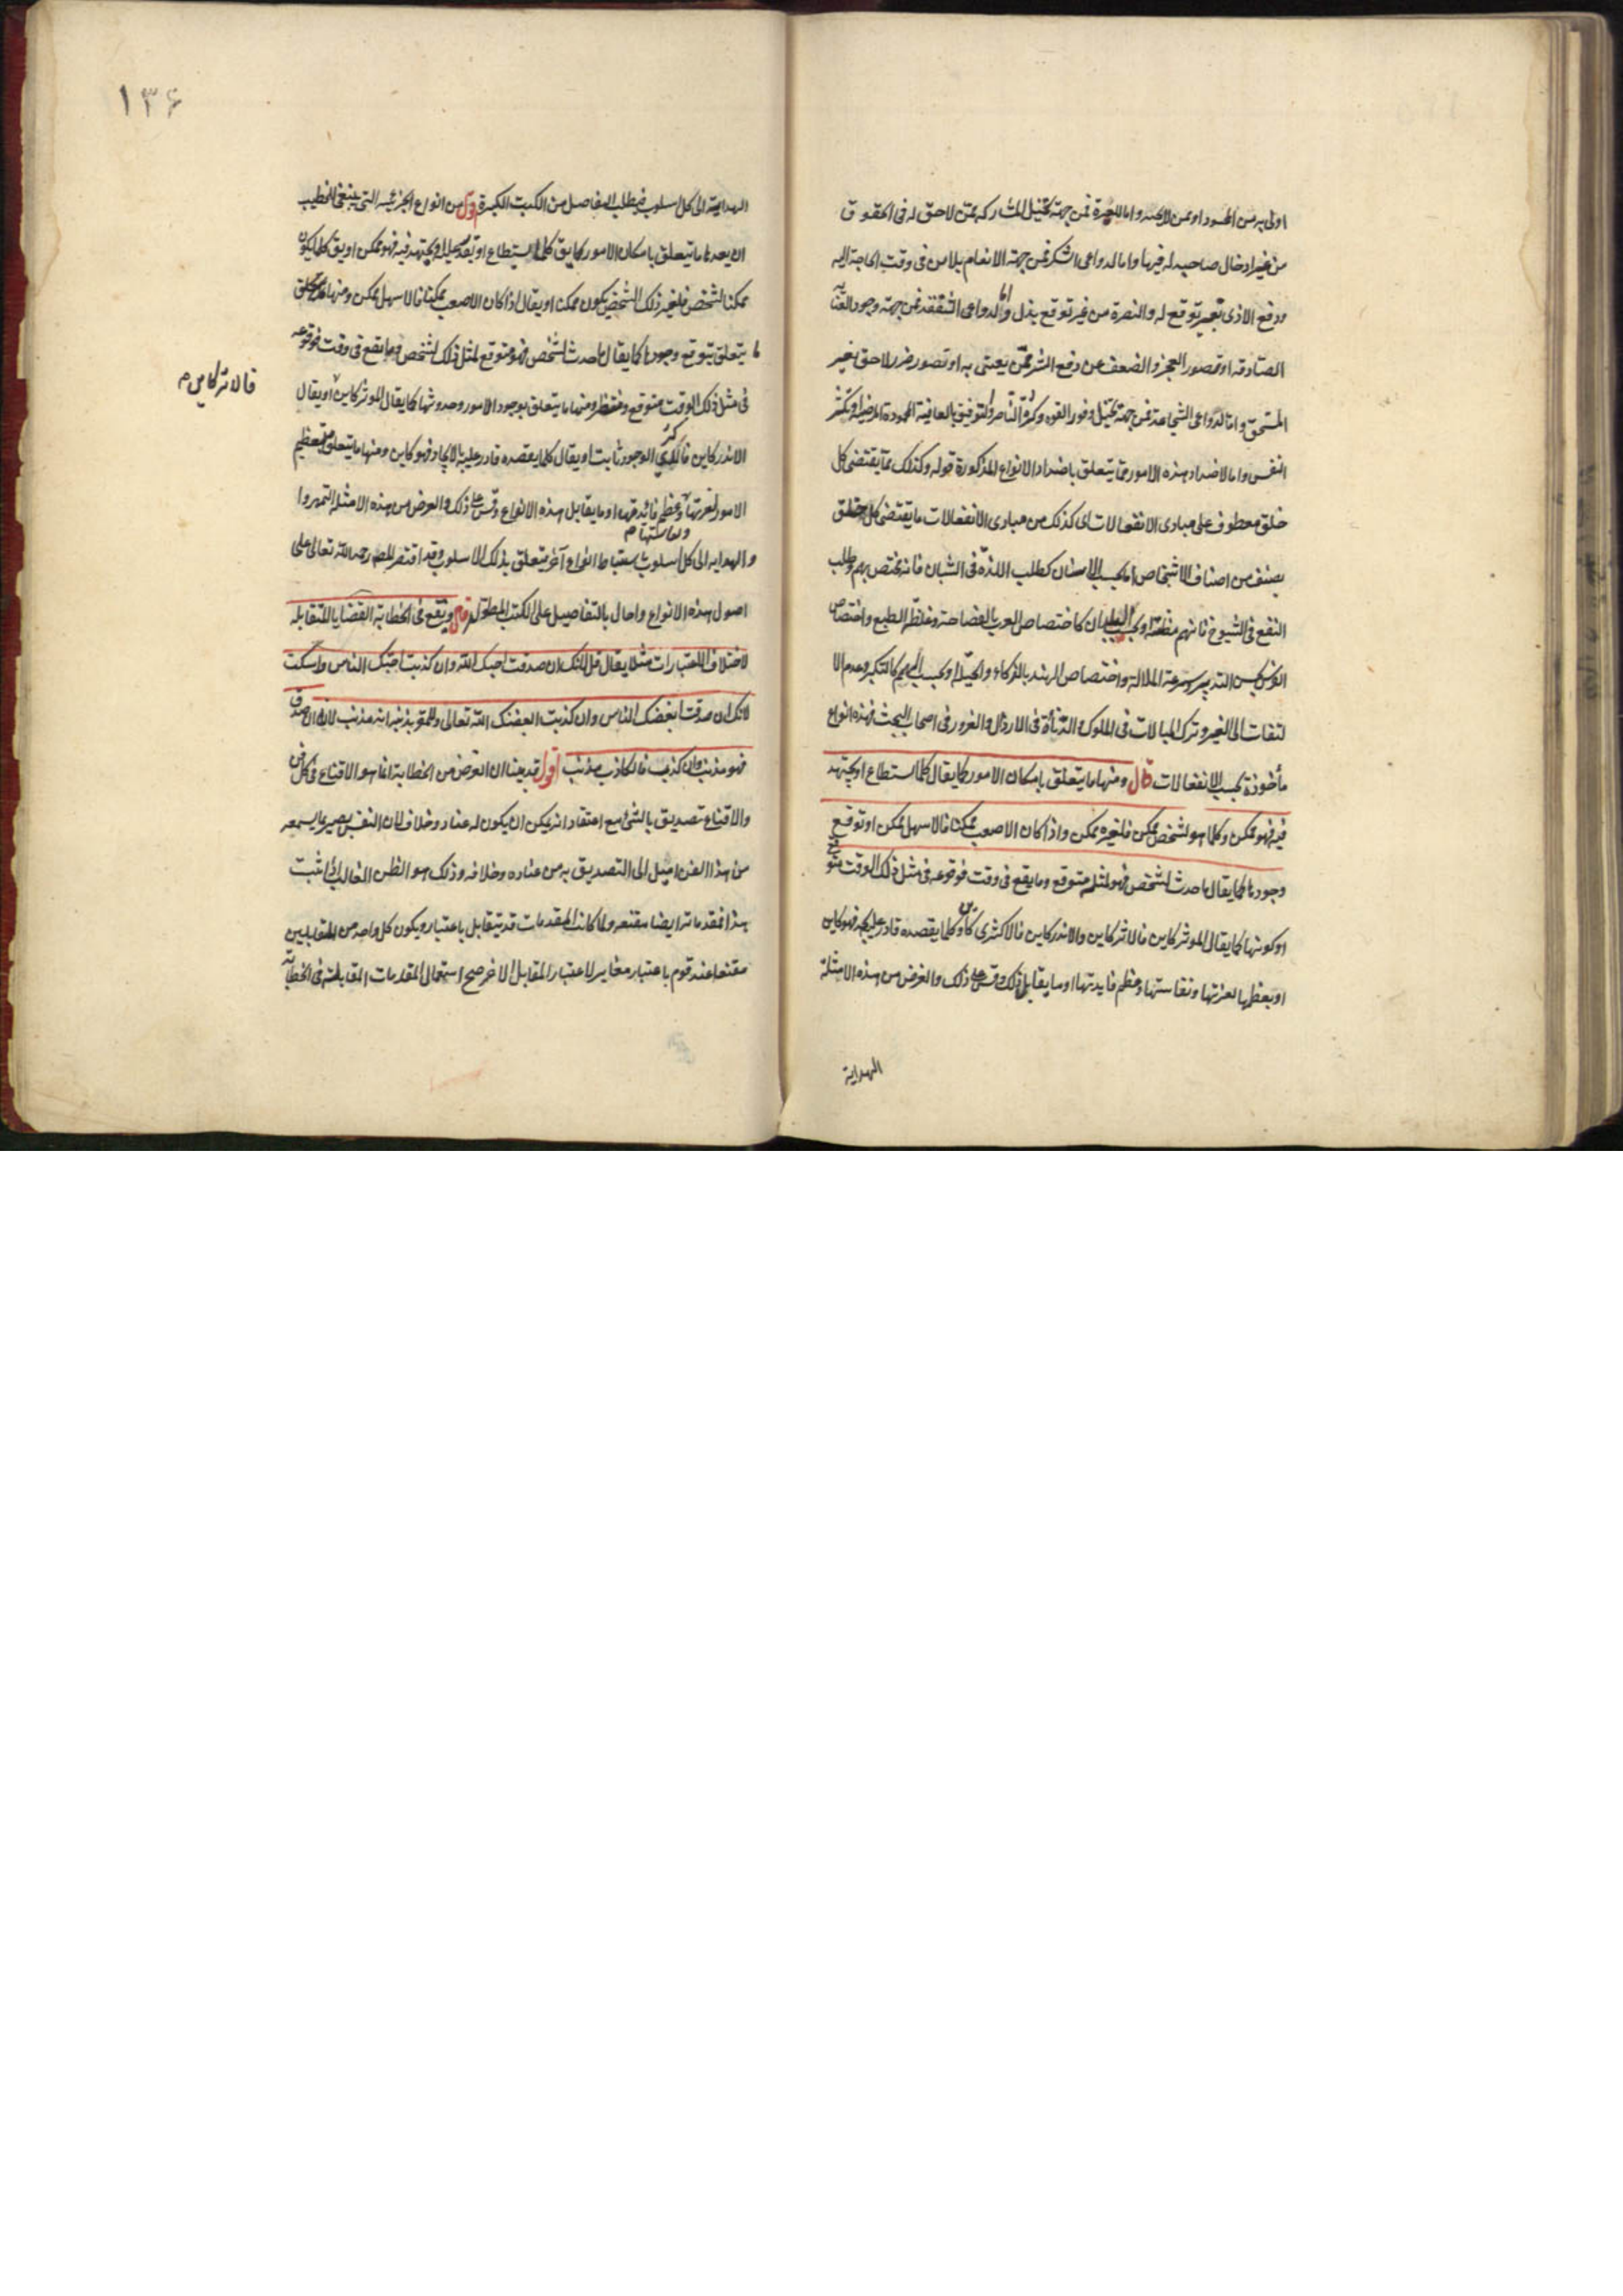 اولى به من الحسود او ممن لا يحسد واما للغيرة فمن جهة تخيل المشاركة ممن لا حق له فى الحقوق
من غير ادخال صاحبه له فيها واما لدواعى الشكر فمن جهة الانعام بلا من فى وقت الحاجة اليه
ودفع الاذى بغير توقع له والنصرة من غير توقع بذل واما لدواعى الشفقة فمن جهة وجود العناية
الصادقة او تصور العجز والضعف من دفع الشر ممن يعتنى به او تصور ضرر لاحق بغير
المستحق واما لدواعى الشجاعة فمن جهة تخيل وفور القوة وكثرة الناصر والتوفيق بالعافية المحمودة
النفس واما لاضداد هذه الامور مما يتعلق باضداد الانواع المذكورة قوله وكذلك مما يقتضى كل
خلق معطوف على مبادى الانفعالات اى كذلك من مبادى الانفعالات ما يقتضى كل خلق
بصنف من اصناف الاشخاص اما بحسب الاسنان كطلب اللذة فى الشبان فانه يختص بهم وطلب
النفع فى الشيوخ فانهم او بحسب البلدان كاختصاص العرب بالفصاحة وغلظ الطبع واختصاص
بحسن التدبير وسرعة الملالة واختصاص الهند بالذكاء والحيلة او بحسب الهمم كالتكبر وعدم الا
لتفات الى الغير وترك المبالات فى الملوك والدنائة فى الارذال والغرور فى اصحاب البخت فهذه انواع
مأخوذة بحسب الانفعالات قال ومنها ما يتعلق بامكان الامور كما يقال كلما استطاع او يجتهد
فيه فهو ممكن وكلما هو لشخص ممكن فلغيره ممكن واذا كان الاصعب ممكنا فالاسهل ممكن او توقع
وجودها كما يقال ما حدث لشخص فهو لمثله متوقع وما يقع فى وقت فوقوعه فى مثل ذلك الوقت متوقع
او كونها كما يقال الموثر كاين فالاثر كاين والاندر كاين فالاكثرى كاين او كلما يقصده قادر عليه فهو كاين
او بعظمها لعزتها ونفاستها وعظم فايدتها او ما يقابل ذلك وقس على ذلك والغرض من هذه الامثلة
الهداية
١٣۶
الهداية الى كل اسلوب فيطلب التفاصيل من الكتب الكبيرة اقول من انواع الجزئية التى ينبغى للخطيب
ان يعدها ما يتعلق بامكان الامور كما يق كلما يستطاع او يجتهد فيه فهو ممكن او يق كلما يكون
ممكنا لشخص فلغير ذلك الشخص يكون ممكنا او يقال اذا كان الاصعب ممكنا فالاسهل ممكن ومنها
ما يتعلق بتوقع وجودها كما يقال ما حدث لشخص فهو متوقع لمثل ذلك الشخص وما يقع فى وقت فوقوعه
فى مثل ذلك الوقت متوقع ومنتظر ومنها ما يتعلق بوجود الامور وحدوثها كما يقال الموثر كاين او يقال
فالاثر كاين م
الاندر كاين فاكثرى الوجود ثابت او يقال كلما يقصده قادر عليه بالايجاد فهو كاين ومنها ما يتعلق بتعظيم
الامور لعزتها وعظم فائدتها او ما يقابل هذه الانواع وقس على ذلك والغرض من هذه الامثلة التمهر
ونفاستها م
والهداية الى كل اسلوب باستنباط انواع آخر متعلق بذلك الاسلوب وقد اقتصر المص رحمه الله تعالى على
اصول هذه الانواع واحال بالتفاصيل على الكتب المطولة قال ويقع فى الخطابة القضايا المتقابلة
لاختلاف الاعتبارات مثلا يقال قل لانك ان صدقت احبك الله وان كذبت احبك الناس واسكت
لانك ان صدقت ابغضك الناس وان كذبت ابغضك الله تعالى وللمقر بذنبه انه مذنب لانه ان صدق
فهو مذنب وان كذب فالكاذب مذنب اقول قد بينا ان الغرض من الخطابة انما هو الاقناع فى كل فن
والاقناع تصديق بالشئ مع اعتقاد انه يمكن ان يكون له عناد وخلاف لان النفس يصير بما يسمعه
من هذا الفن اميل الى التصديق به من عناده وخلافه وذلك هو الظن الغالب اذا ثبت
هذا فمقدماته ايضا مقنعة ولما كانت المقدمات قد يتقابل باعتبار ويكون كل واحد من المتقابلين
مقنعا عند قوم باعتبار مغاير لاعتبار المقابل الاخر صح استعمال المقدمات المتقابلة فى الخطابة